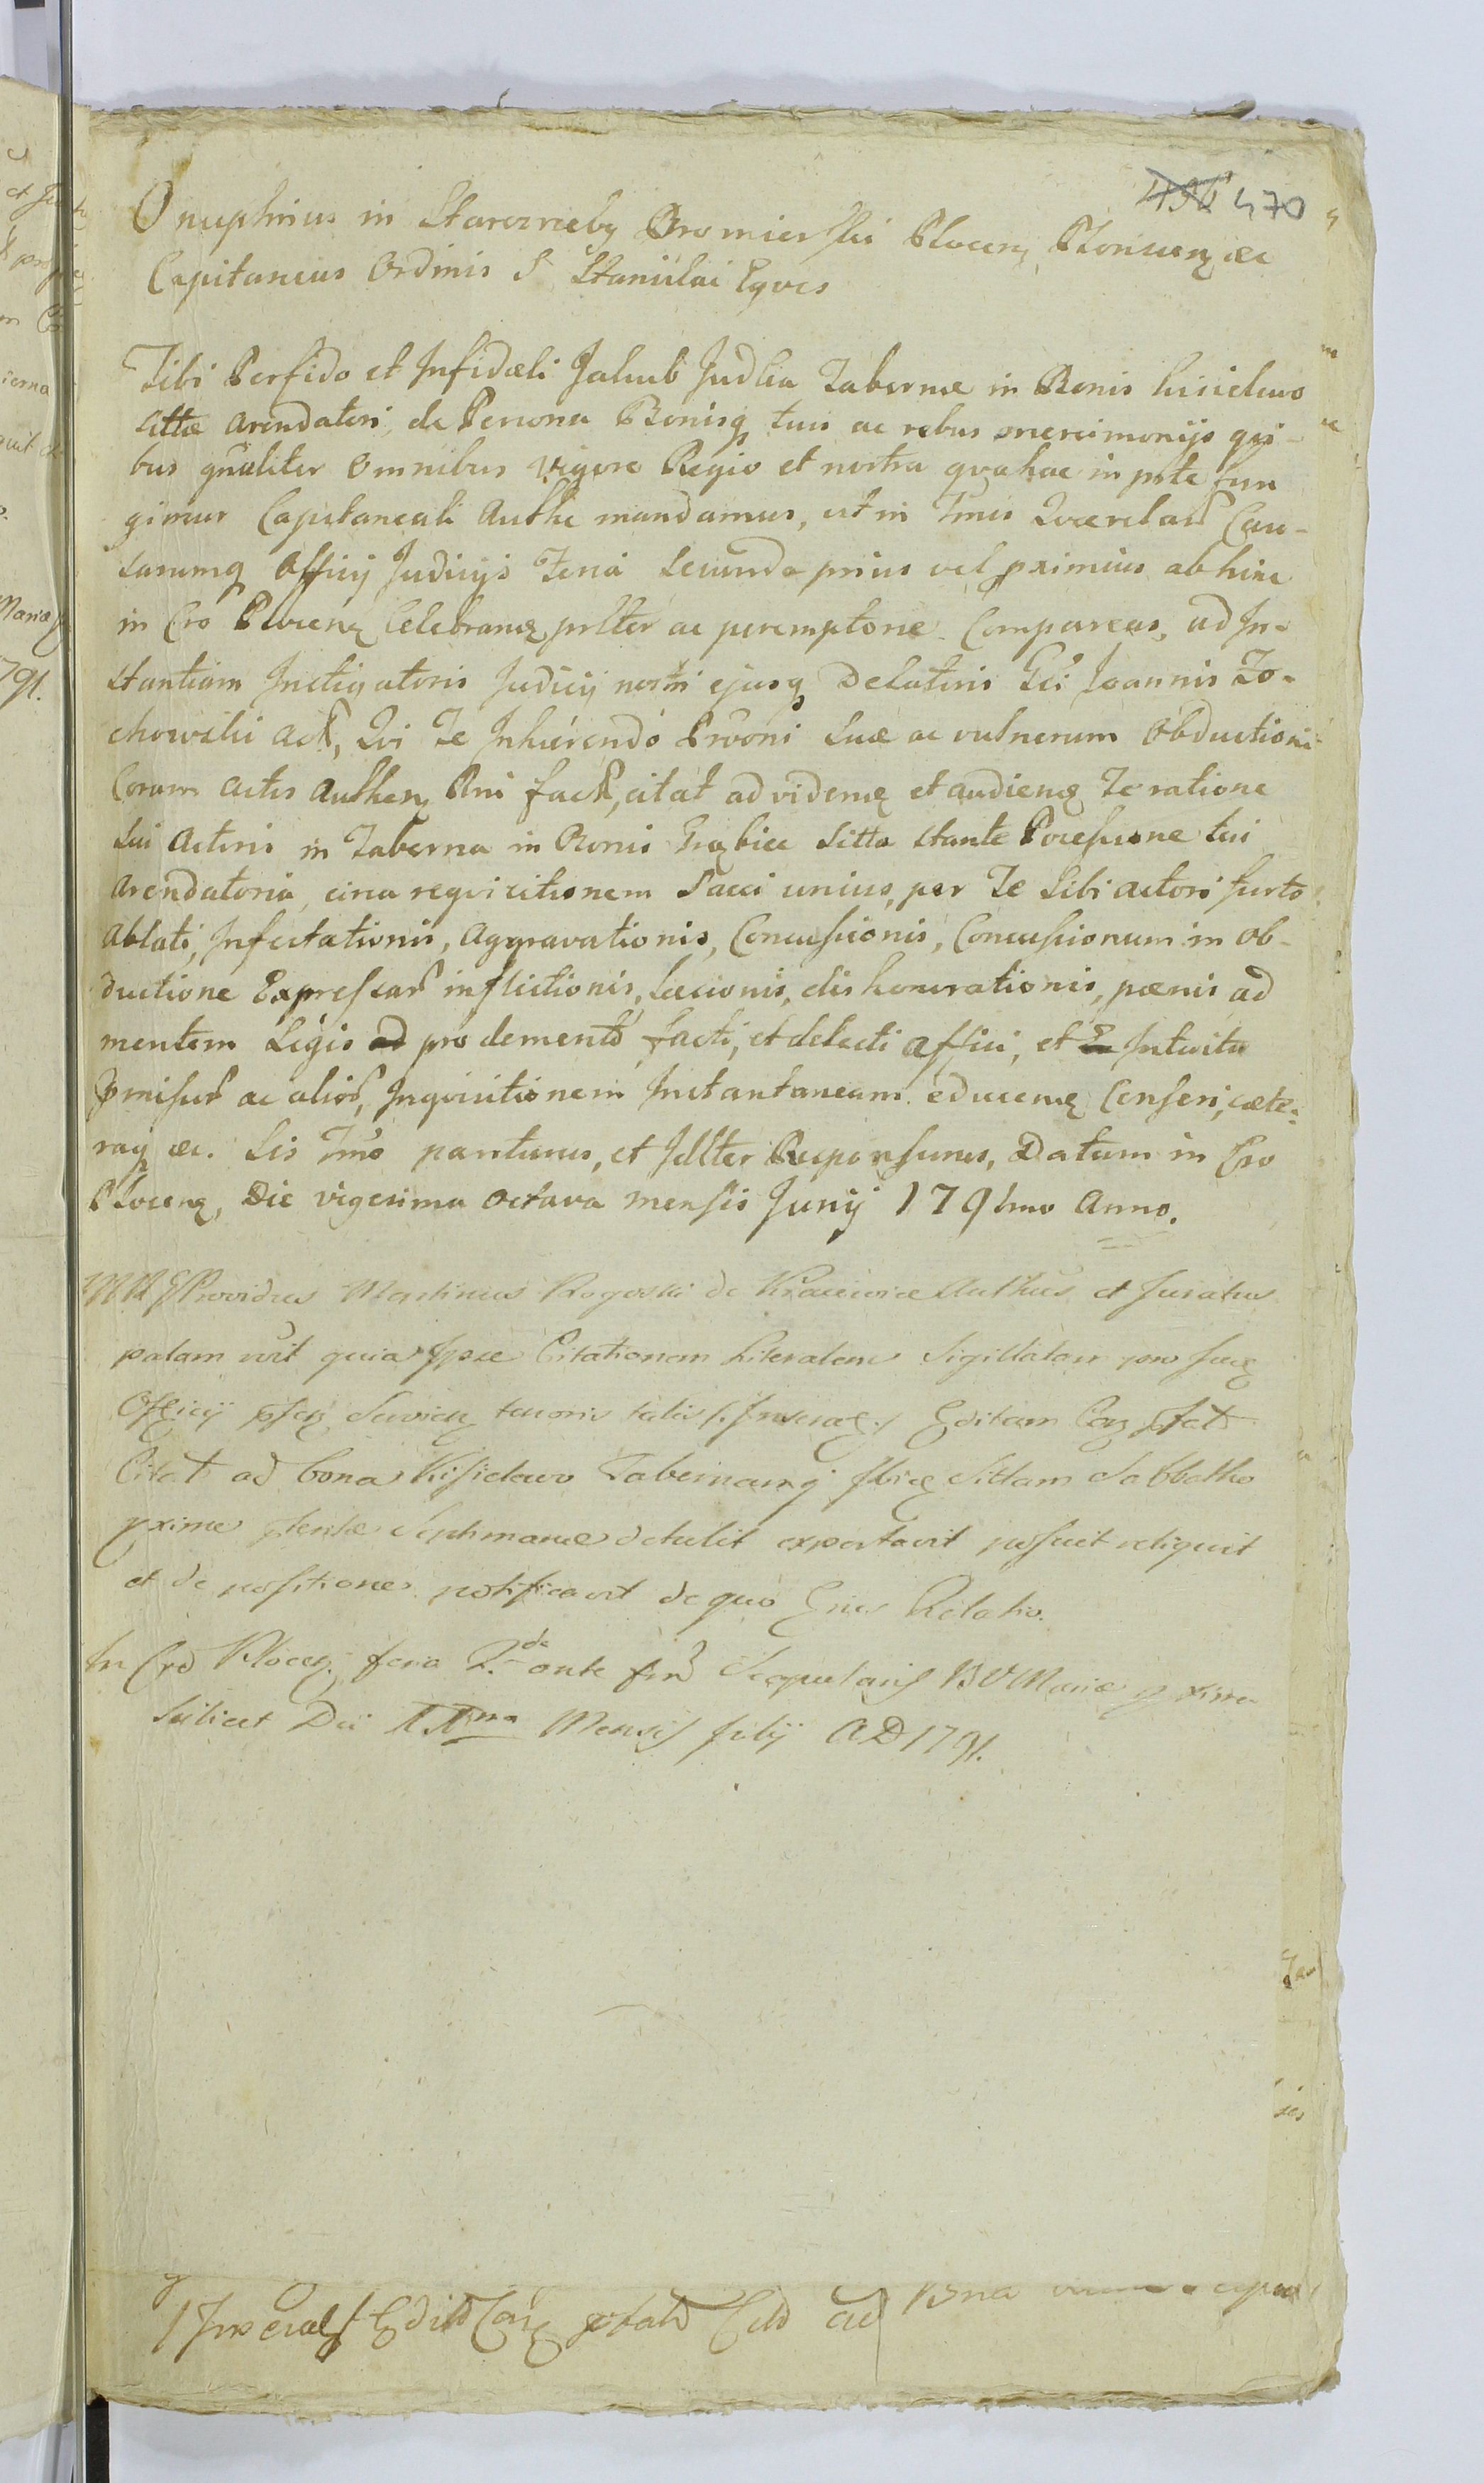 496 470
Onuphrius in Starozreby Bromierski Plocen, Plonscen, &c
Capitaneus Ordinis S. Stanislai Eques
Tibi Perfido et Infidæli Jakub Judka Tabernæ in Bonis
sittæ Arendatori, de Persona Bonisq tuis ac rebus mercimonijs qui-
bus gnaliter omnibus vigore Regio et nostra qua hac in prte fun
gimur Capitaneali Autthe mandamus, ut in Tmis Quærelar Cau-
sarumq Officij Judicijs Feria Secunda prius vel proximius abhinc
in Cro Plocen Celebran prlter ac peremptorie Compareas, ad In-
stantiam Instigatoris Judicij nostri ejusq Delatoris Gsi Joannis Zo-
chowski Act, Qvi Te Inhærendo Prtõni Suæ ac vulnerum Obductioni
Coram actis Authen Pni fact, citat ad viden et audien Te ratione
Sui Actoris in Taberna in Bonis sitta stante Possessione tui
Arendatoria, circa requisitionem Sacci unius, per Te Sibi actori furto
Ablati, Infestationis, Aggravationis, Concussionis, Concussionum in Ob-
ductione Expressar inflictionis, Læsionis, dishonorationis, pænis ad
mentem Legis ad pro demento facti, et delicti affici, et Intuitu
Pmissor ac alior, Inquisitionem Instantaneam educen Censeri, cæte-
raq &c. Sis Tmo pariturus, et Jdlter Responsurus, Datum in Cro
Plocen, Die vigesima octava mensis Junij 1791mo Anno.
Providus Martinus Rogoski de Authus et Juratus
palam rec̃t quia Ipse Citationem Literalem Sigillatam pro
Officij tenoris talis /:Inserat:/ Editam
Citat ad bona Tabernamq Sittam Sabbatho
pxime Septimanæ detulit exportavit posuit reliquit
et de positione notificavit de quo Eius Relatio.
In Cro Plocen. feria 2.da ante B V Mariæ pxima
Scilicet Die Mensis Julij A D 1791.
/Inserat/ Edit ad Bna